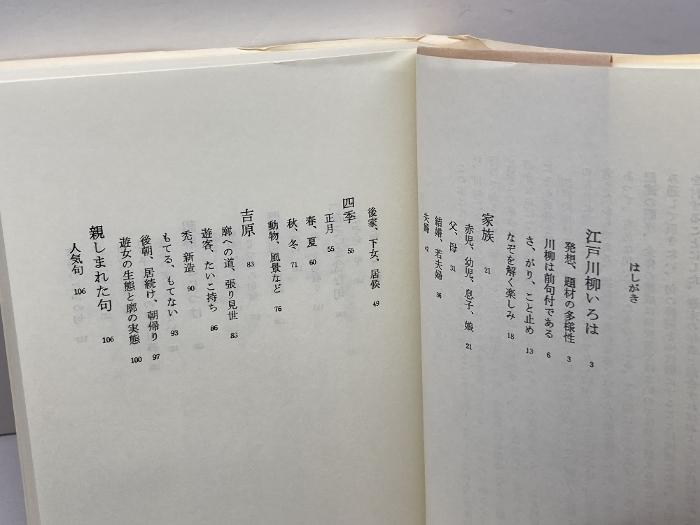 はしがき
江戸川柳いろは 3
発想、題材の多様性 3
川柳は前句付である 6
さ、がり、こと止め 13
なぞを解く楽しみ 18
家族 21
赤児、幼児、息子、娘 21
父、母 31
結婚、若夫婦 36
夫婦 42
後家、下女、居候 49
四季 55
正月 55
春、夏 60
秋、冬 71
動物、風景など 76
吉原 83
廓への道、張り見世 83
遊客、たいこ持ち 86
禿、新造 90
もてる、もてない 93
後朝、居続け、朝帰り 97
遊女の生態と廓の実態 100
親しまれた句 106
人気句 106